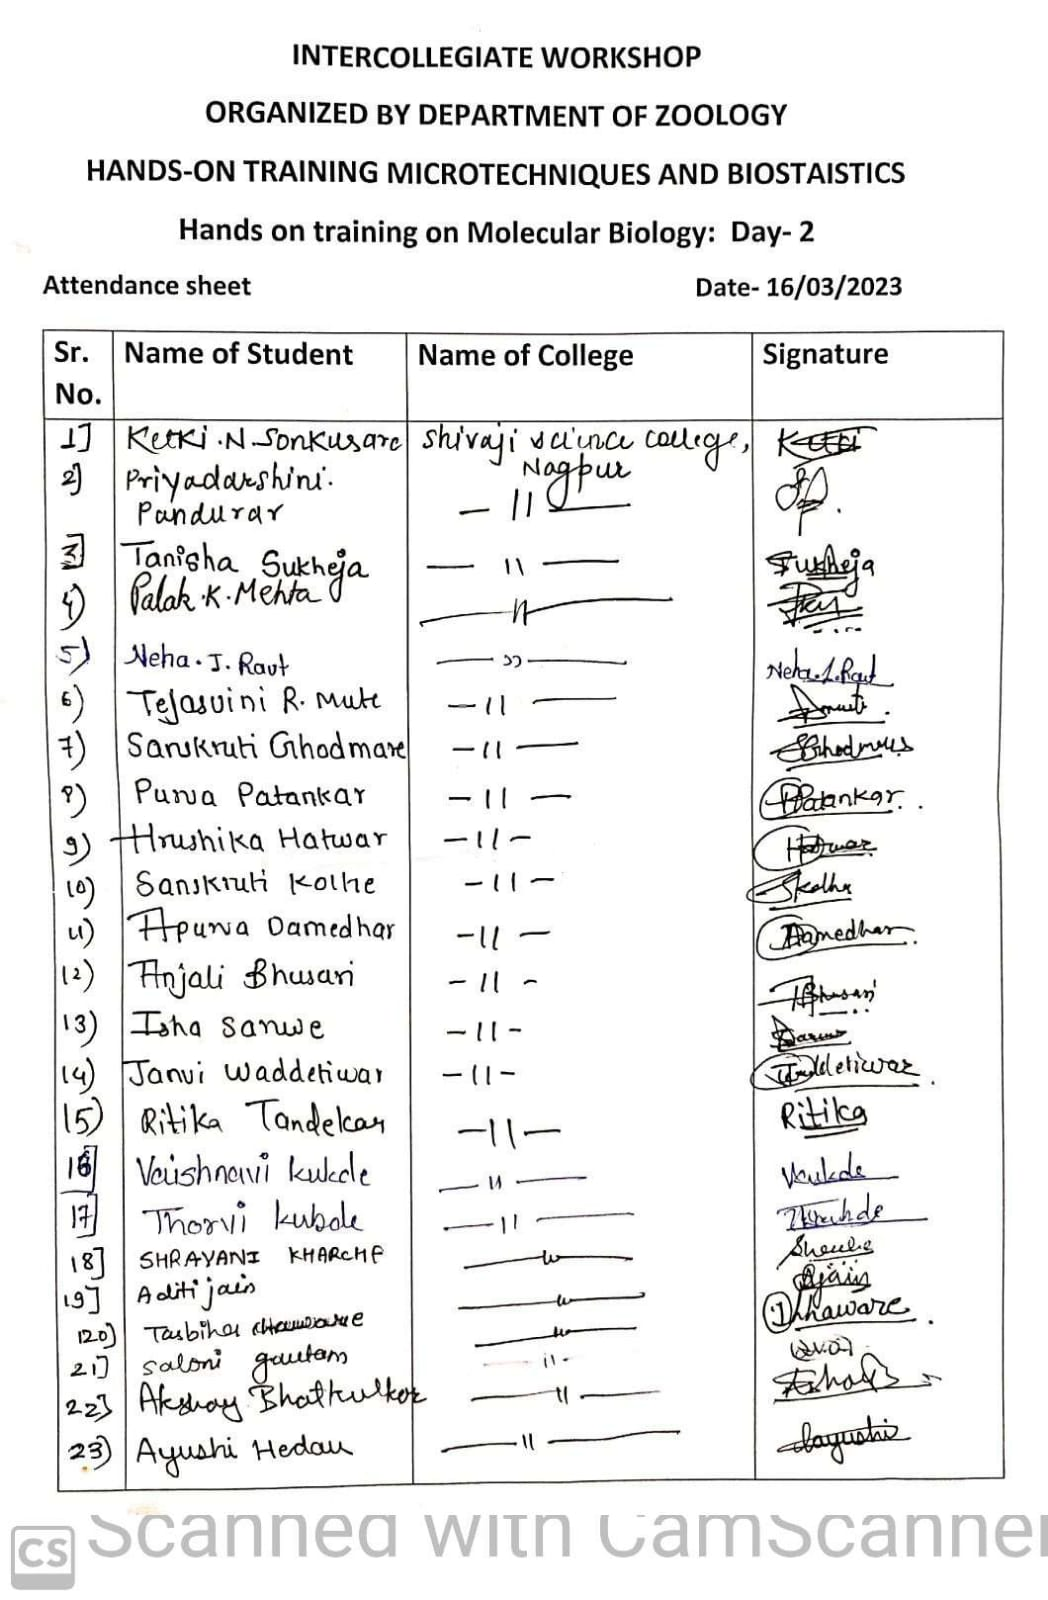 INTERCOLLEGIATE WORKSHOP
ORGANIZED BY DEPARTMENT OF ZOOLOGY
HANDS-ON TRAINING MICROTECHNIQUES AND BIOSTAISTICS
Hands on training on Molecular Biology: Day- 2
Attendance sheet Date- 16/03/2023
Sr. No. Name of Student Name of College Signature
1] Ketki.N.Sonkusare shivaji science college, Nagpur Ketki
2) Priyadarshini. Pandurar — 11 —
3] Tanisha Sukheja — 11 — Sukheja
4) Palak.K.Mehta — 11 —
5) Neha.J.Raut — ,, — Neha.J.Raut
6) Tejasvini R. Mute — 11 —
7) Sanskruti Ghodmare — 11 —
8) Purva Patankar — 11 — Patankar..
9) Hrushika Hatwar — 11 — Hatwar
10) Sanskruti Kolhe — 11 — Skolhe
11) Apurva Damedhar — 11 — Damedhar.
12) Anjali Bhusari — 11 - Bhusari
13) Isha Sanwe — 11 -
14) Janvi Waddetiwar — 11 -
15) Ritika Tandekar — 11 — Ritika
16] Vaishnavi kukde — 11 — Vkukde
17] Thorvi kubde — 11 —
18] SHRAVANI KHARCHE — 11 —
19] Aditi jain — 11 — Ajain
20] Tasbiha — 11 —
21] Saloni gautam — 11 -
22] Akshay Bhatkulkar — 11 —
23) Ayushi Hedau — 11 — Aayushi
CS Scanned with CamScanner